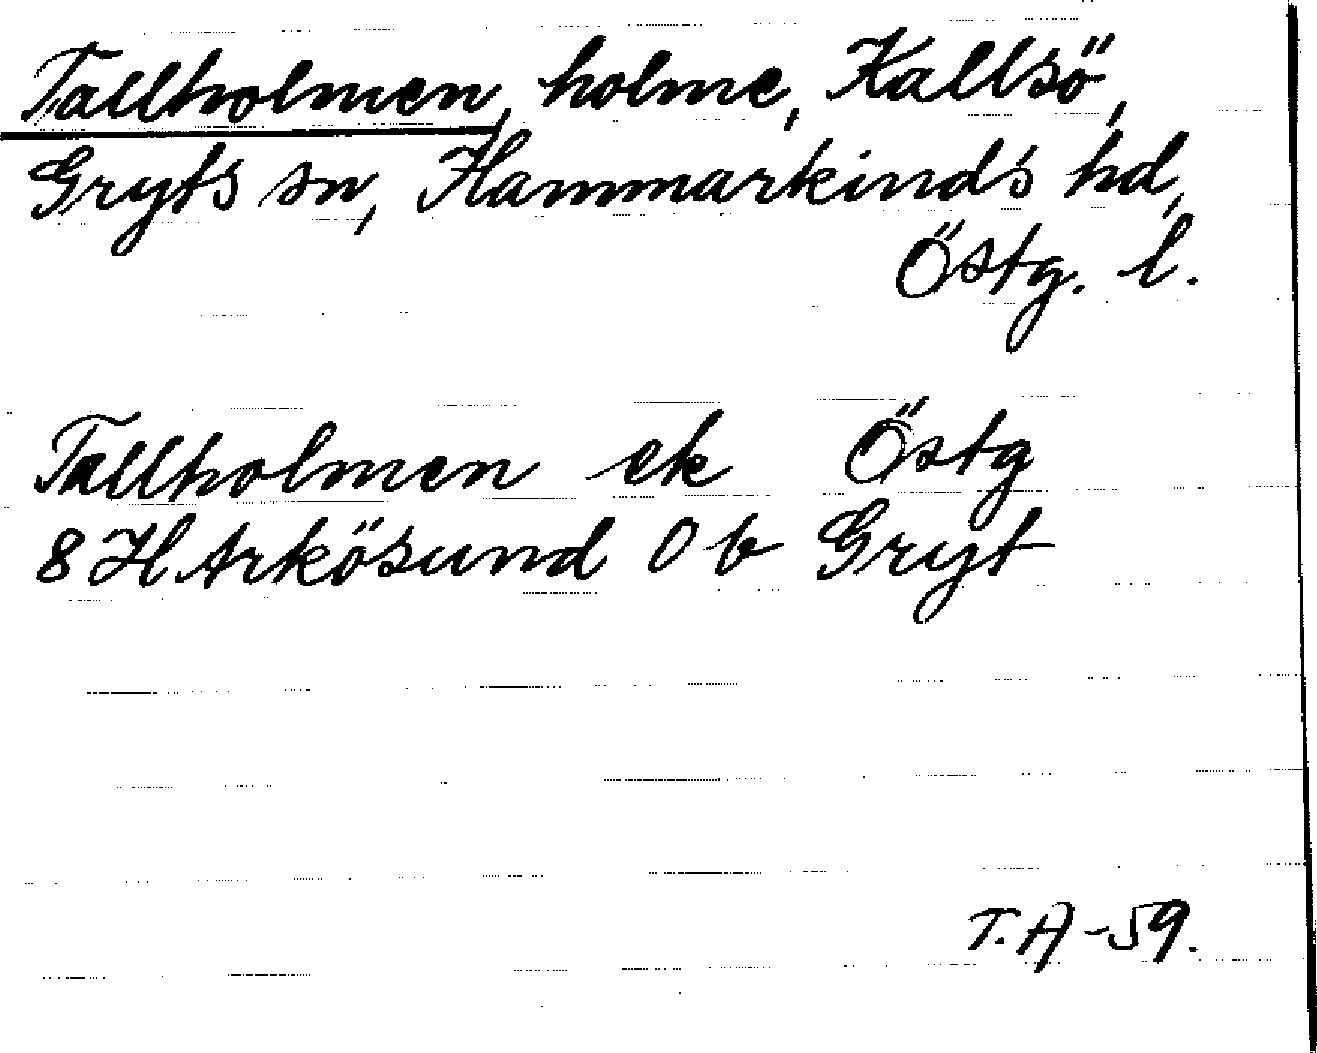 Tallholmen, holme, Kallsö,
Gryts sn, Hammarkinds hd,
Östg. l.
Tallholmen ek Östg
8 H Arkösund 0 b Gryt
T.A -59.